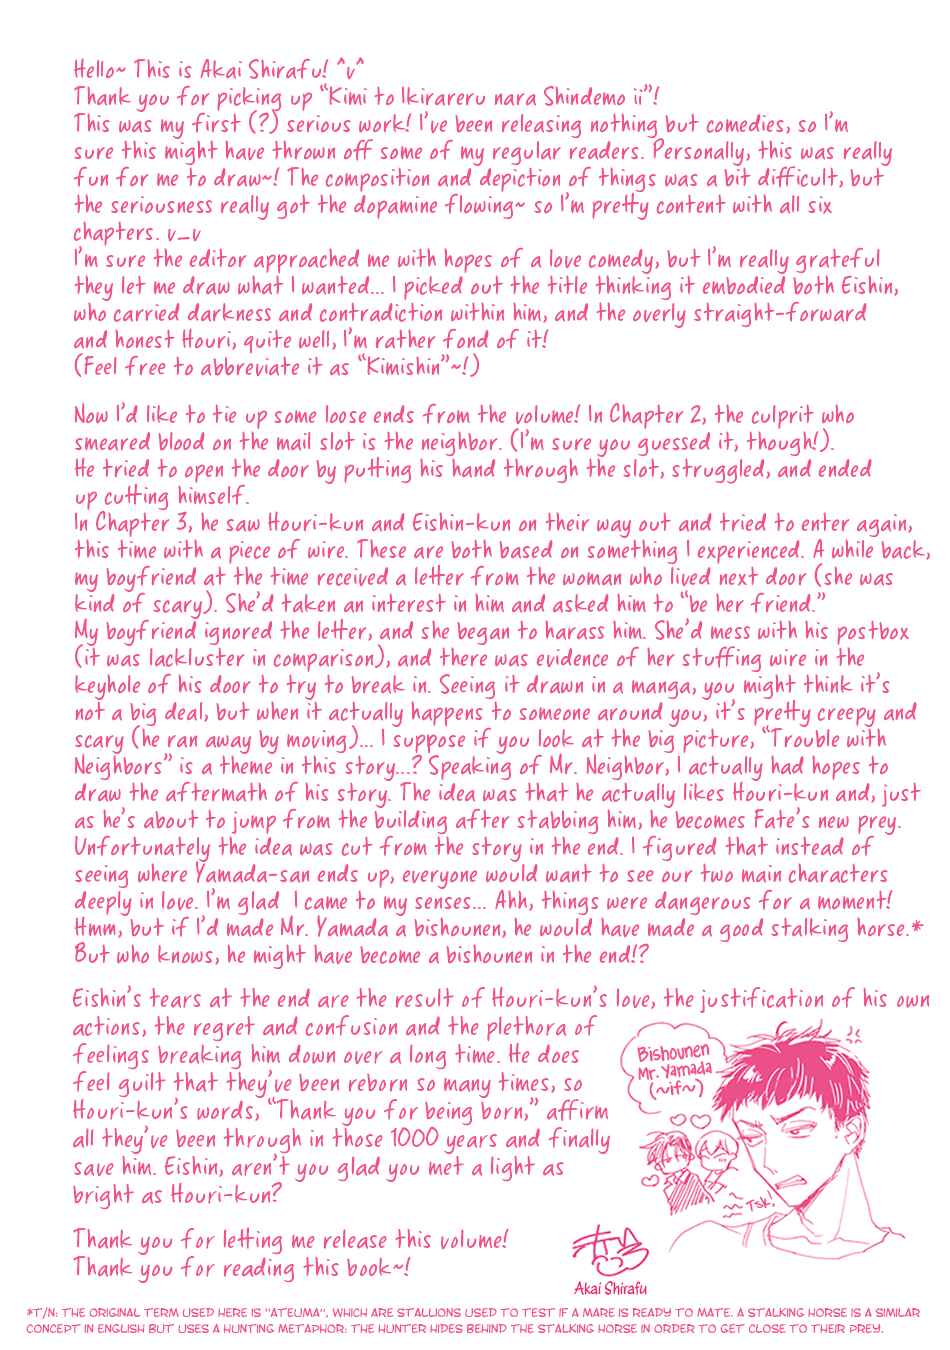 Hello~ This is Akai Shirafu! ^v^
Thank you for picking up "Kimi to Ikirareru nara Shindemo ii"!
This was my first (?) serious work! I've been releasing nothing but comedies, so I'm
sure this might have thrown off some of my regular readers. Personally, this was really
fun for me to draw~! The composition and depiction of things was a bit difficult, but
the seriousness really got the dopamine flowing~ so I'm pretty content with all six
chapters. v_v
I'm sure the editor approached me with hopes of a love comedy, but I'm really grateful
they let me draw what I wanted... I picked out the title thinking it embodied both Eishin,
who carried darkness and contradiction within him, and the overly straight-forward
and honest Houri, quite well, I'm rather fond of it!
(Feel free to abbreviate it as "Kimishin"~!)
Now I'd like to tie up some loose ends from the volume! In Chapter 2, the culprit who
smeared blood on the mail slot is the neighbor. (I'm sure you guessed it, though!).
He tried to open the door by putting his hand through the slot, struggled, and ended
up cutting himself.
In Chapter 3, he saw Houri-kun and Eishin-kun on their way out and tried to enter again,
this time with a piece of wire. These are both based on something I experienced. A while back,
my boyfriend at the time received a letter from the woman who lived next door (she was
kind of scary). She'd taken an interest in him and asked him to "be her friend."
My boyfriend ignored the letter, and she began to harass him. She'd mess with his postbox
(it was lackluster in comparison), and there was evidence of her stuffing wire in the
keyhole of his door to try to break in. Seeing it drawn in a manga, you might think it's
not a big deal, but when it actually happens to someone around you, it's pretty creepy and
scary (he ran away by moving)... I suppose if you look at the big picture, "Trouble with
Neighbors" is a theme in this story...? Speaking of Mr. Neighbor, I actually had hopes to
draw the aftermath of his story. The idea was that he actually likes Houri-kun and, just
as he's about to jump from the building after stabbing him, he becomes Fate's new prey.
Unfortunately the idea was cut from the story in the end. I figured that instead of
seeing where Yamada-san ends up, everyone would want to see our two main characters
deeply in love. I'm glad I came to my senses... Ahh, things were dangerous for a moment!
Hmm, but if I'd made Mr. Yamada a bishounen, he would have made a good stalking horse.*
But who knows, he might have become a bishounen in the end!?
Eishin's tears at the end are the result of Houri-kun's love, the justification of his own
actions, the regret and confusion and the plethora of
feelings breaking him down over a long time. He does
feel guilt that they've been reborn so many times, so
Houri-kun's words, "Thank you for being born," affirm
all they've been through in those 1000 years and finally
save him. Eishin, aren't you glad you met a light as
bright as Houri-kun?
Bishounen
Mr. Yamada
(~if~)
Tsk!
Thank you for letting me release this volume!
Thank you for reading this book~!
Akai Shirafu
*T/N: THE ORIGINAL TERM USED HERE IS "ATEUMA", WHICH ARE STALLIONS USED TO TEST IF A MARE IS READY TO MATE. A STALKING HORSE IS A SIMILAR
CONCEPT IN ENGLISH BUT USES A HUNTING METAPHOR: THE HUNTER HIDES BEHIND THE STALKING HORSE IN ORDER TO GET CLOSE TO THEIR PREY.